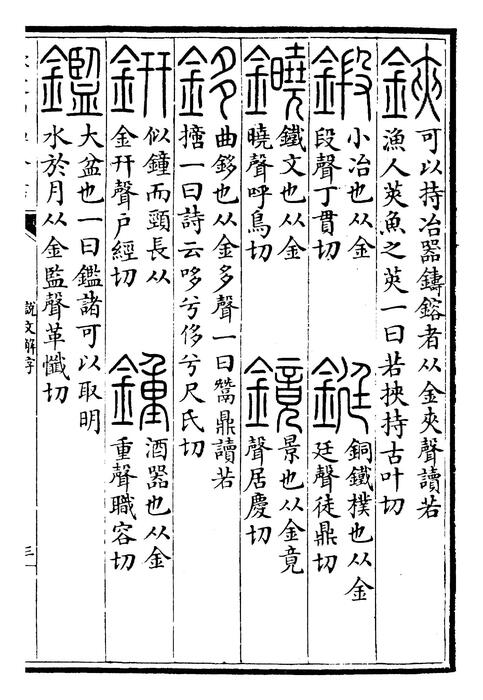 鋏 可以持冶器鑄鎔者从金夾聲讀若
漁人莢魚之莢一曰若挾持古叶切
鍛 小冶也从金
段聲丁貫切
鋌 銅鐵樸也从金
廷聲徒鼎切
鐵文也从金
曉聲呼鳥切
鏡 景也从金竟
聲居慶切
鉹 曲鉹也从金多聲一曰鬵鼎讀若
搚一曰詩云哆兮侈兮尺氏切
鈃 似鐘而頸長从
金幵聲戶經切
鍾 酒器也从金
重聲職容切
鑑 大盆也一曰鑑諸可以取明
水於月从金監聲革懺切
說文解字
三